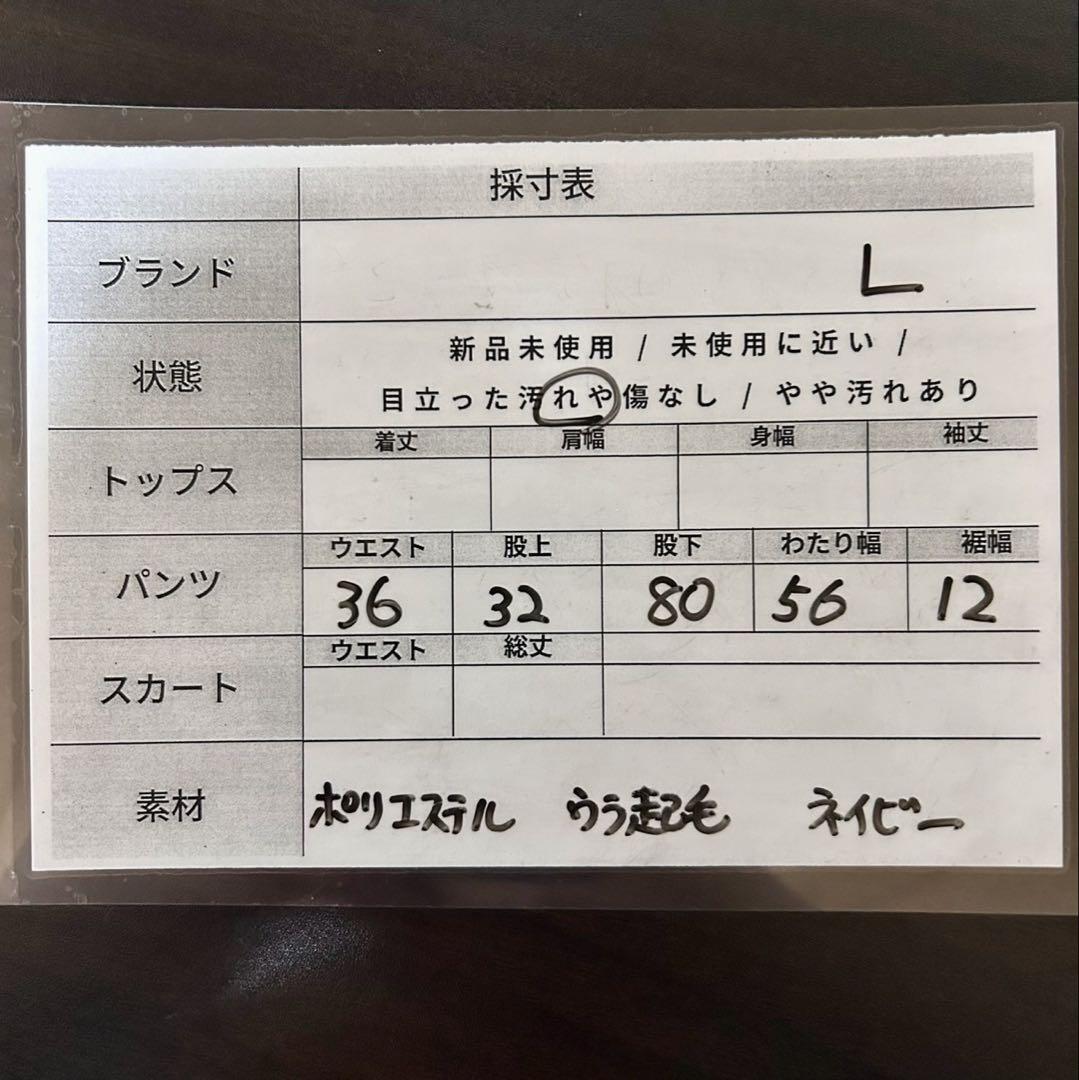 採寸表
ブランド L
状態 新品未使用 / 未使用に近い /
目立った汚れや傷なし / やや汚れあり
トップス 着丈 肩幅 身幅 袖丈
パンツ ウエスト 股上 股下 わたり幅 裾幅
36 32 80 56 12
スカート ウエスト 総丈
素材 ポリエステル ウラ起毛 ネイビー